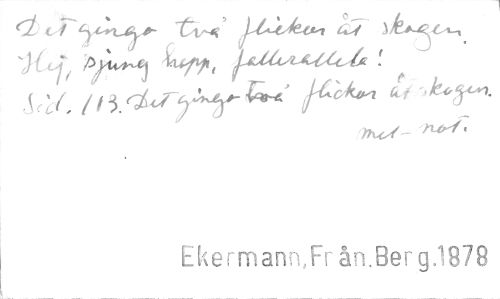 Det gingo två flickor åt skogen.
Hej, sjung hopp, fallerallela!
Sid. 113. Det gingo två flickor åt skogen.
mel-not.
Ekermann, Från.Berg.1878